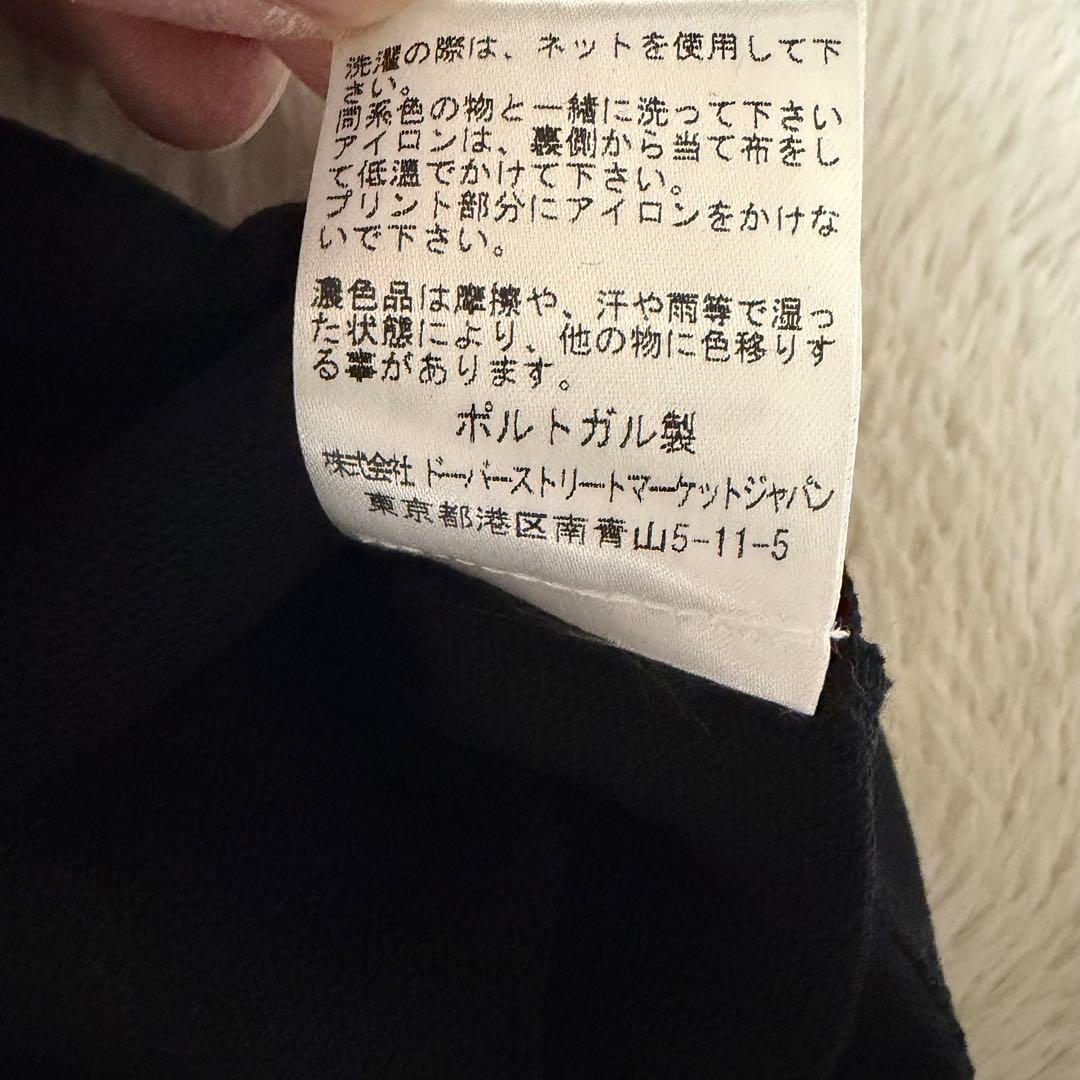 洗濯の際は、ネットを使用して下
さい。
同系色の物と一緒に洗って下さい
アイロンは、裏側から当て布をし
て低温でかけて下さい。
プリント部分にアイロンをかけな
いで下さい。
濃色品は摩擦や、汗や雨等で湿っ
た状態により、他の物に色移りす
る事があります。
ポルトガル製
株式会社 ドーバーストリートマーケットジャパン
東京都港区南青山5-11-5